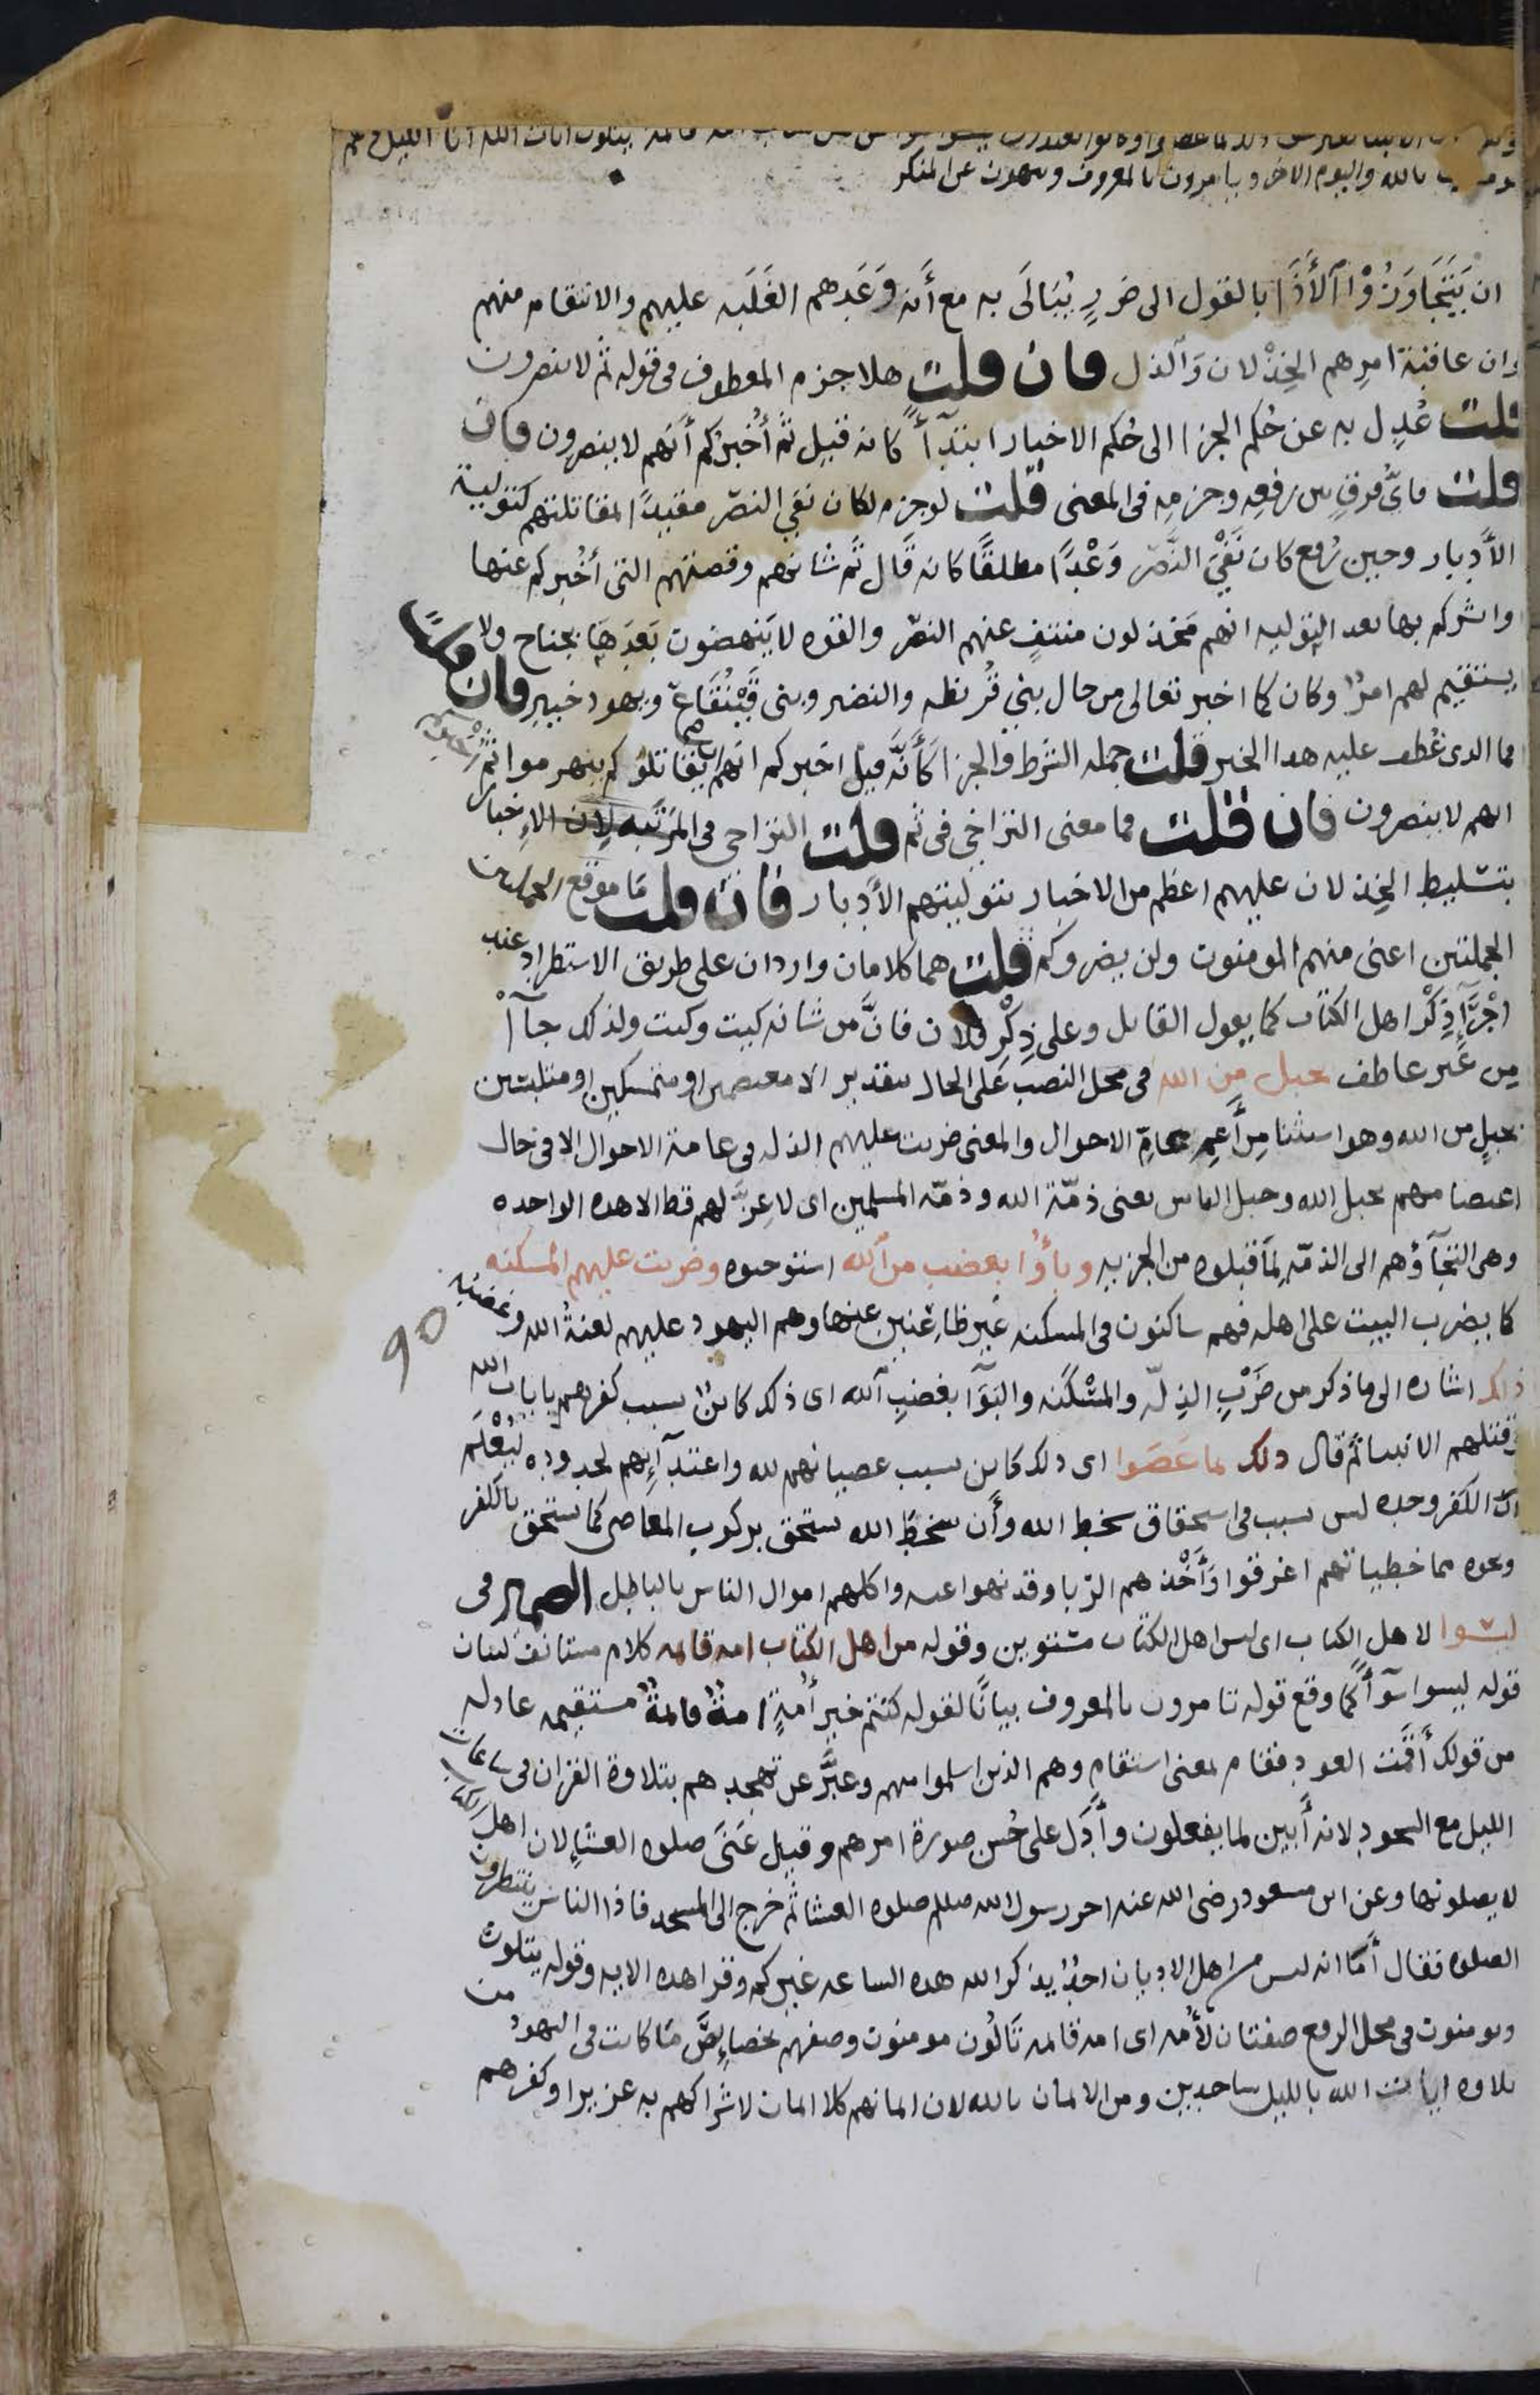 الانبيا بغير حق ذلك بما عصوا وكانوا يعتدون ليسوا سوا من اهل الكتاب امه قائمة يتلون ايات الله انا الليل وهم
بالله واليوم الاخر ويامرون بالمعروف وينهون عن المنكر
ان يَتَجَاوَزُوْا الْأَذَا بالقول الى ضررٍ يُبَالَى به مع أنه وَعَدهم الغَلَبه عليهم والانتقام منهم
وان عاقبة امرهم الخِذْلان والذل فان قلت هلا جزم المعطوف فى قوله ثم لا ينصرون
قلت عُدِل به عن حُكم الجزا الى حُكم الاخبار ابتدآأ كانه قيل ثم أُخبركم أنهم لا ينصرون فان
قلت فايُّ فرقٍ بين رفعِه وجزمِه فى المعنى قلت لو جزم لكان نفي النصر مقيدًا بمقاتلتهم كتولية
الأدبار وحين رُفع كان نَفْيُ النَّصر وَعْدًا مطلقًا كانه قال ثم شانهم وقصتهم التى أُخبركم عنها
وابشركم بها بعد التوليه انهم مخذلون منتفٍ عنهم النصر والقوه لا يَنهضون بَعدَها بجناح ولا
يستقيم لهم امرٌ وكان كما اخبر تعالى من حال بني قُريظه والنضير وبنى قَيْنُقَاع ويهود خيبر فان قلت
فما الذى عُطف عليه هذا الخبر قلت جمله الشرط والجزا كَأَنَّه قيل اخبركم انهم ان يقاتلوكم ينهزموا ثم اخبركم
انهم لا ينصرون فان قلت فما معنى التراخي فى ثم قلت التراخى فى المرتبه لان الإخبار
بتسليط الخِذلان عليهم اعظم من الاخبار بتوليتهم الأدبار فان قلت ما موقع
الجملتين اعنى منهم المومنون ولن يضروكم قلت هما كلامان واردان على طريق الاستطراد عند
اجْرَآءِ ذِكْرِ اهل الكتاب كما يقول القايل وعلى ذِكْرِ فلان فانَّ من شانه كيت وكيت ولذلك جآأ
من غير عاطف بحبل من الله فى محل النصب على الحال بتقدير الا معتصمين او متمسكين او متلبسين
بحبلٍ من الله وهو استثنا مِن أَعمِ عامّ الاحوال والمعنى ضربت عليهم الذله فى عامة الاحوال الا فى حال
اعتصامهم بحبل الله وحبل الناس يعنى ذمّة الله وذمّه المسلمين اى لا عزَّ لهم قط الا هذه الواحده
وهى التجآؤهم الى الذمّه لِمَا قبلوه من الجزيه وبآؤا بغضب من الله استوجبوه وضربت عليهم المسكنه
كما يضرب البيت على اهله فهم ساكنون فى المسكنه غير ظاعنين عنها وهم اليهود عليهم لعنةُ الله وغضبه
ذلك اشاره الى ما ذكر من ضَرْبِ الذِلّه والمَسْكَنه والبَوَآ بغضب الله اى ذلك كائنٌ بسبب كفرهم بايات الله
وقتلهم الانبيا ثم قال ذلك بما عَصَوا اى ذلك كاين بسبب عصيانهم لله واعتدآئِهم لحدوده ليُعْلَم
ان الكفر وحده ليس بسبب فى استحقاق سخط الله وأن سخط الله يستحق بركوب المعاصى كما يستحق بالكفر
ونحوه مما خطيياتهم اغرقوا وَأَخْذِهم الرّبا وقد نهوا عنه واكلهم اموال الناس بالباطل الضمير فى
ليسوا لاهل الكتاب اى ليس اهل الكتاب مستوين وقوله من اهل الكتاب امه قائمه كلام مستانف لبيان
قوله ليسوا سَوآأً كما وقع قوله تامرون بالمعروف بيانًا لقوله كنتم خير أُمةٍ امةٌ قائمةٌ مستقيمه عادله
من قولك أَقَمْت العود فقام بمعنى استقام وهم الذين اسلموا منهم وعبَّر عن تهجدهم بتلاوة القران فى ساعات
الليل مع السجود لانه أَبين لما يفعلون وأَدَل على حُسن صورة امرهم وقيل عَنَى صلوه العشآء لان اهل الكتاب
لا يصلونها وعن ابن مسعود رضى الله عنه اخر رسول الله صللم صلوه العشا ثم خرج الى المسجد فاذا الناس ينتظرون
الصلوه فقال أَمَا انه ليس من اهل الاديان احدٌ يذكر الله هذه الساعه غيركم وقرا هذه الايه وقوله يتلون
ويومنون فى محل الرفع صفتان لأُمه اى امه قائمه تَالُون مومنون وصفهم بخصائِصَ ما كانت فى اليهود من
تلاوه ايات الله بالليل ساجدين ومن الايمان بالله لان ايمانهم كلا ايمان لاشراكهم به عزيرا وكفرهم
90